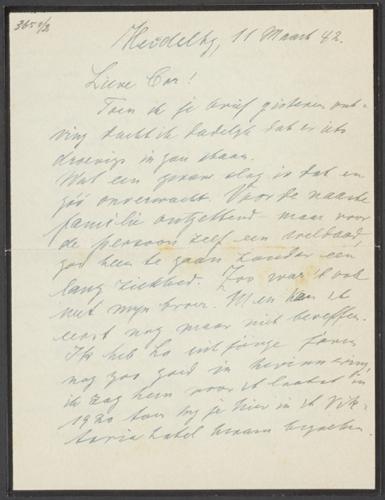 365 c/2
Heidelbg, 11 Maart 42.
Lieve Cor!
Toen ik je brief gisteren ont-
ving dacht ik dadelyk dat er iets
droevigs in zou staan.
Wat een zware slag is dat en
zóó onverwacht. Voor de naaste
familie ontzettend maar voor
de persoon zelf een weldaad,
zoo heen te gaan zonder een
lang ziekbed. Zoo was 't ook
met myn broer. Men kan 't
eerst nog maar niet beseffen.
Ik heb uit jonge jaren
nog zoo goed in herinnering,
ik zag hem voor 't laatst in
1920 toen hy je hier in 't Vik-
toria hotel kwam